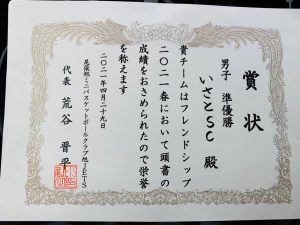 賞状
男子 準優勝
いさとSC 殿
貴チームはフレンドシップ
2021春において頭書の
成績をおさめられたので栄誉
を称えます
二〇二一年四月二十九日
尾張旭ミニバスケットボールクラブ旭JETS
代表 荒谷 晋平